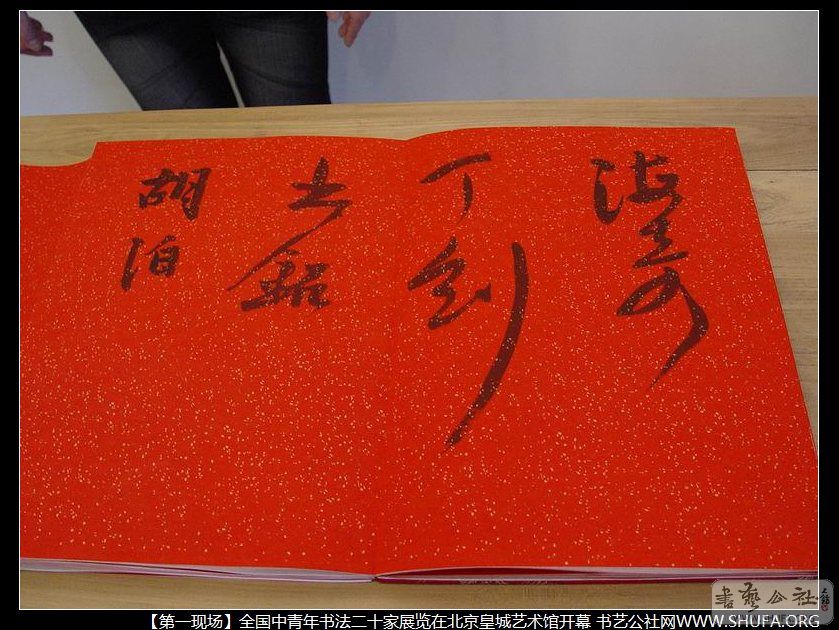 丁剑
胡泊
書藝公社
【第一现场】全国中青年书法二十家展览在北京皇城艺术馆开幕 书艺公社网WWW.SHUFA.ORG